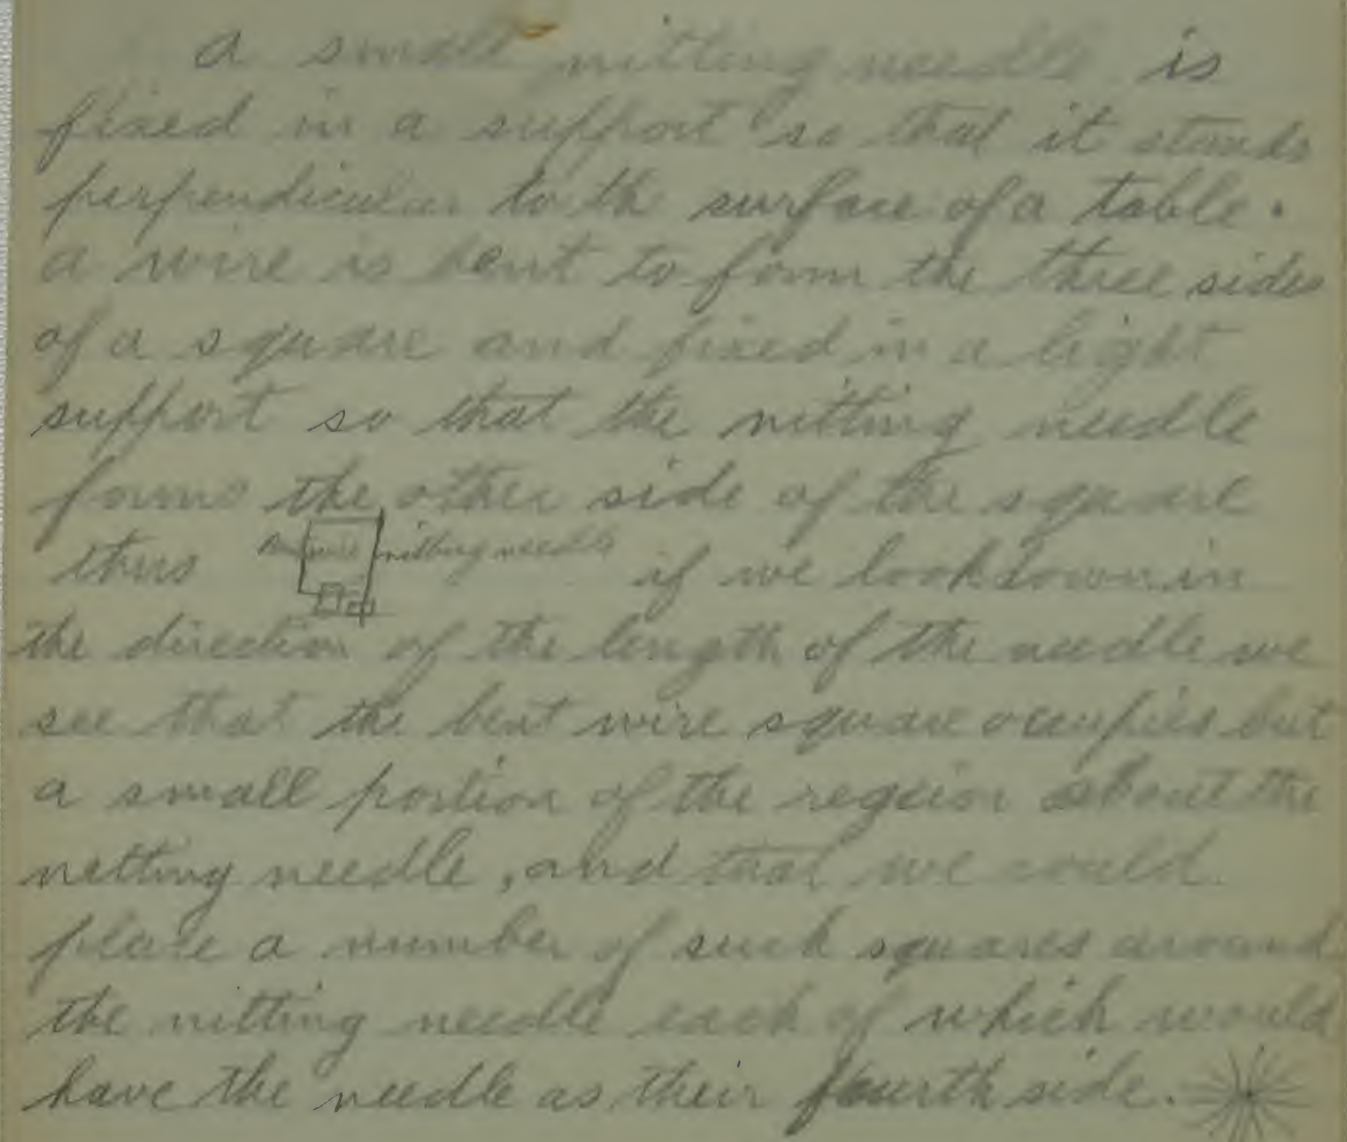 a small nitting needle is
fixed in a support so that it stands
perpendicular to th surface of a table.
a wire is bent to form the three sides
of a square and fixed in a light
support so that the nitting needle
forms the other side of the square
thus wire nitting needle if we look down in
the direction of the length of the needle we
see that the bent wire square ocupies but
a small portion of the region about the
nitting needle, and that we could
place a number of such squares around
the nitting needle each of which would
have the needle as their fourth side.